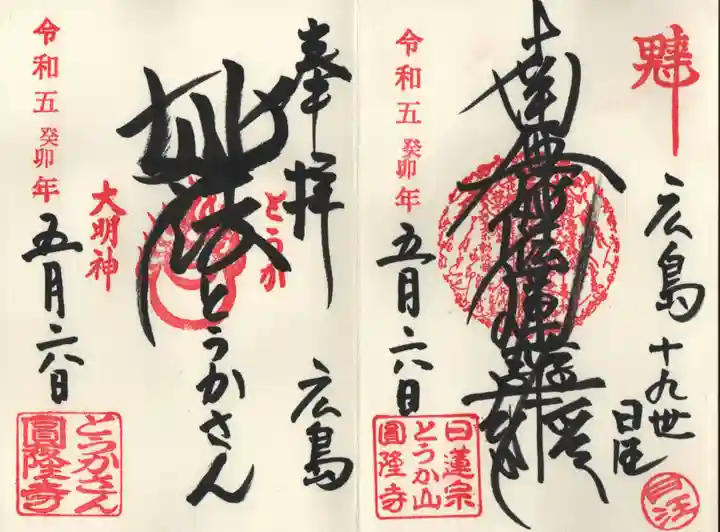 魁
広島十九世
日匠
南無妙法蓮華経
令和五癸卯年
五月二六日
日蓮宗
とうか山
圓隆寺
奉拝
広島
とうか
妙法
とうかさん
大明神
令和五癸卯年
五月二六日
とうかさん
圓隆寺